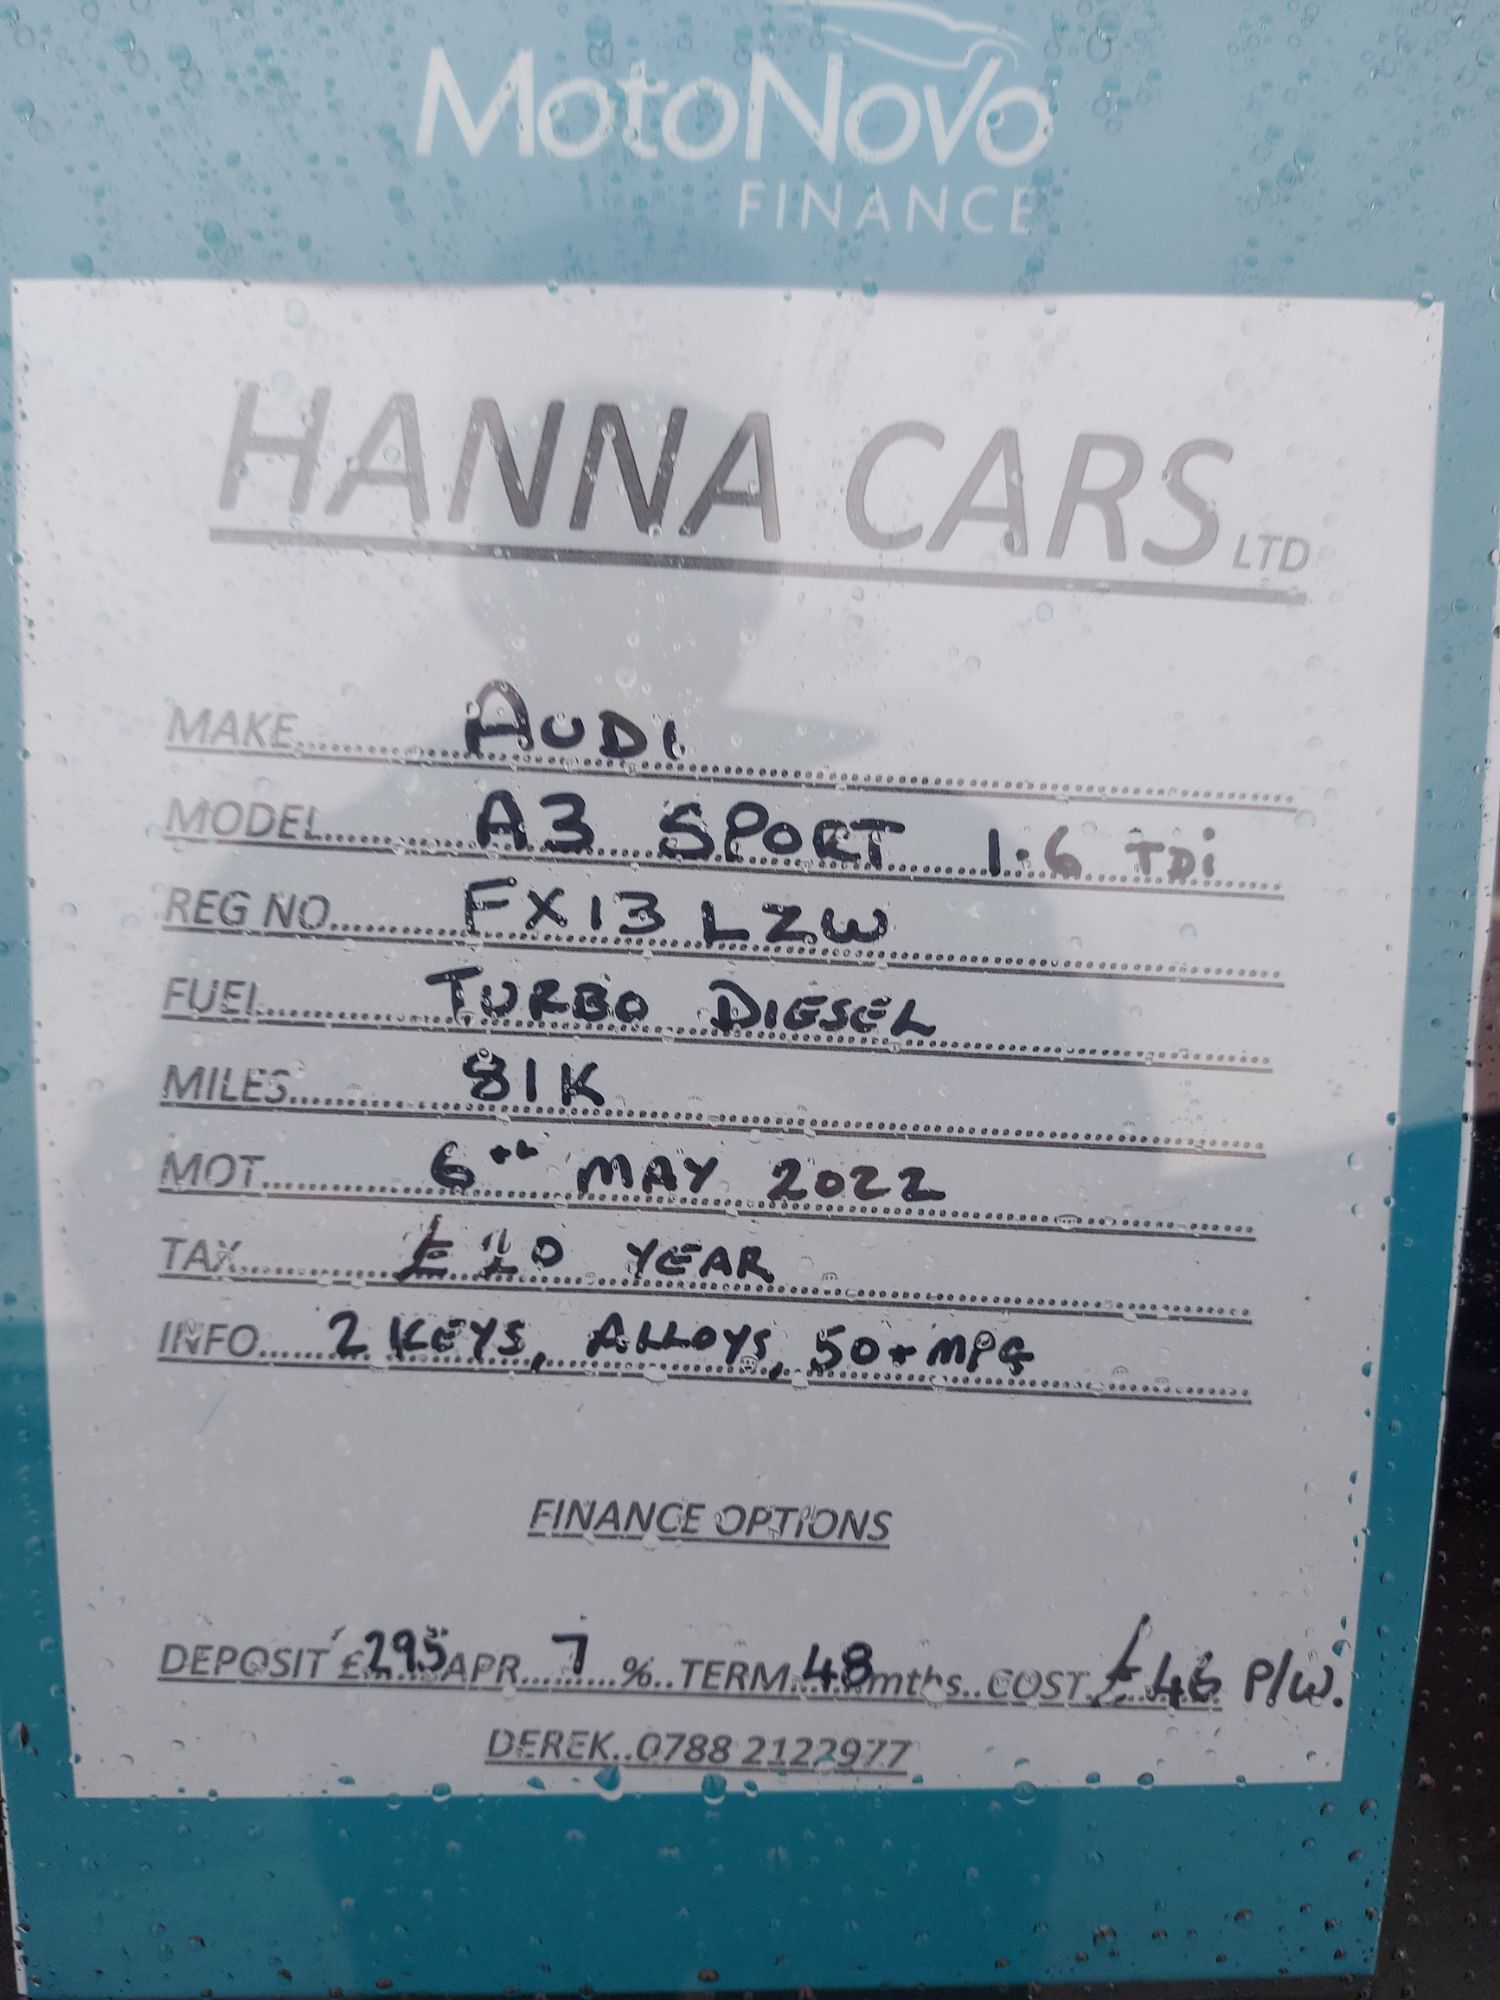 MotoNovo
FINANCE
HANNA CARS LTD
MAKE........ AUDI
MODEL........ A3 SPORT 1.6 TDi
REG NO........ FX13 LZW
FUEL........ TURBO DIESEL
MILES........ 81K
MOT........ 6th MAY 2022
TAX........ £20 YEAR
INFO........ 2 KEYS, ALLOYS, 50+ MPG
FINANCE OPTIONS
DEPOSIT £295 APR...7...%..TERM 48 mths..COST £46 P/W.
DEREK..0788 2122977